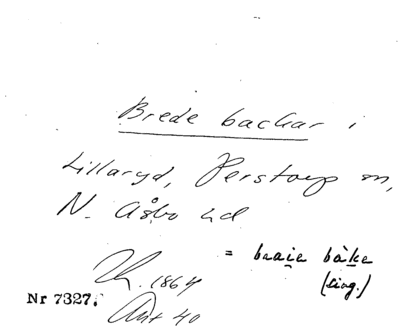 Brede backar i
Lillaryd, Perstorp sn,
N. Åsbo hd
= braie båke
(sing.)
1864
Nr 7327.
Ant 40